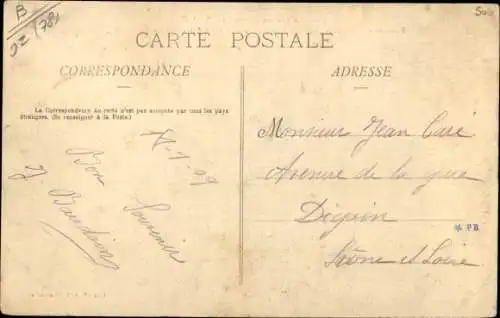 B
02 (78)
CARTE POSTALE
CORRESPONDANCE
ADRESSE
La Correspondance au recto n'est pas acceptée par tous les pays
étrangers. (Se renseigner à la Poste.)
1-09
Bon
Souvenir
J. Baudoin
Monsieur Jean Caré
Avenue de la gare
Digoin
Saône et Loire
PB